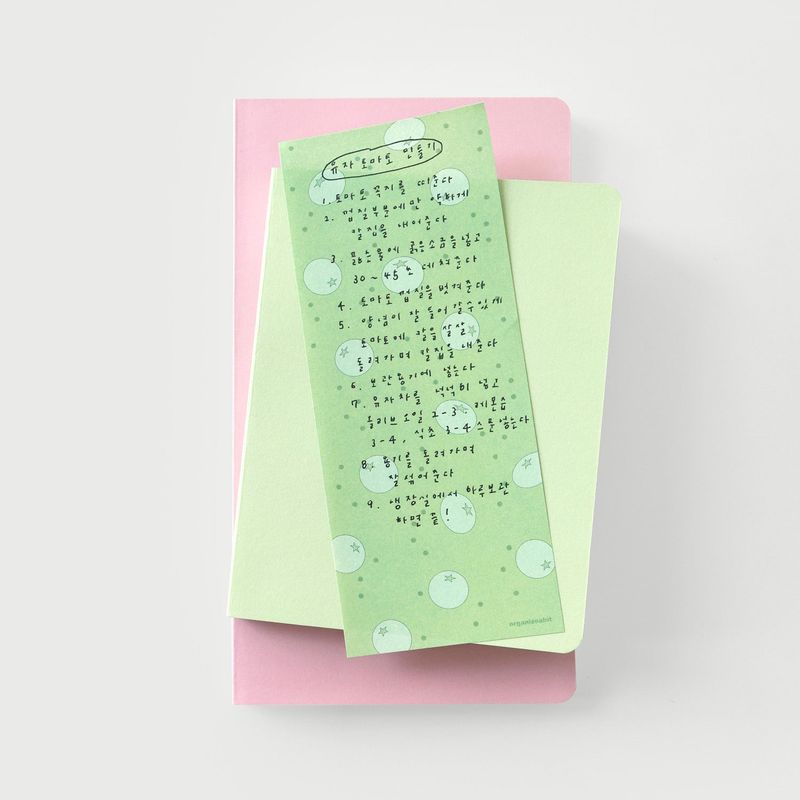 유자 토마토 만들기
1. 토마토 꼭지를 떼준다
2. 껍질부분에만 약하게
칼집을 내어준다
3. 끓는물에 굵은소금을넣고
30~45초 데쳐준다
4. 토마토 껍질을 벗겨준다
5. 양념이 잘 들어갈수있게
토마토에 칼을 살살
돌려가며 칼집을 내준다
6. 보관용기에 넣는다
7. 유자차를 넉넉히 넣고
올리브오일 2-3, 레몬즙
3-4, 식초 3-4스푼넣는다
8. 용기를 돌려가며
잘섞어준다
9. 냉장실에서 하루보관
하면 끝!
organizeabit